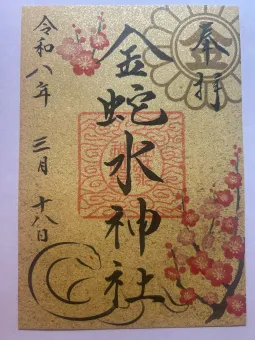 奉拝
金
金蛇水神社
令和八年 三月 十八日